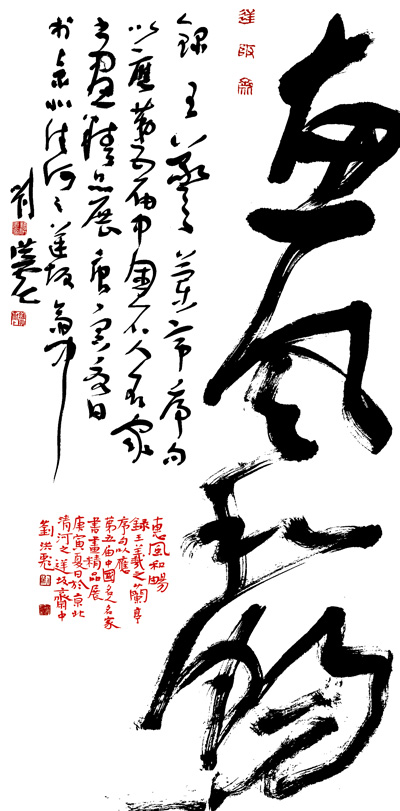 惠風和暢
錄王羲之蘭亭序句
以應第五届中國名人名家
書畫精品展庚寅夏日
於京北清河之逆坂齋中
劉洪彪
惠風和暢
錄王羲之蘭亭
序句以應
第五届中國名人名家
書畫精品展
庚寅夏日於京北
清河之逆坂齋中
劉洪彪